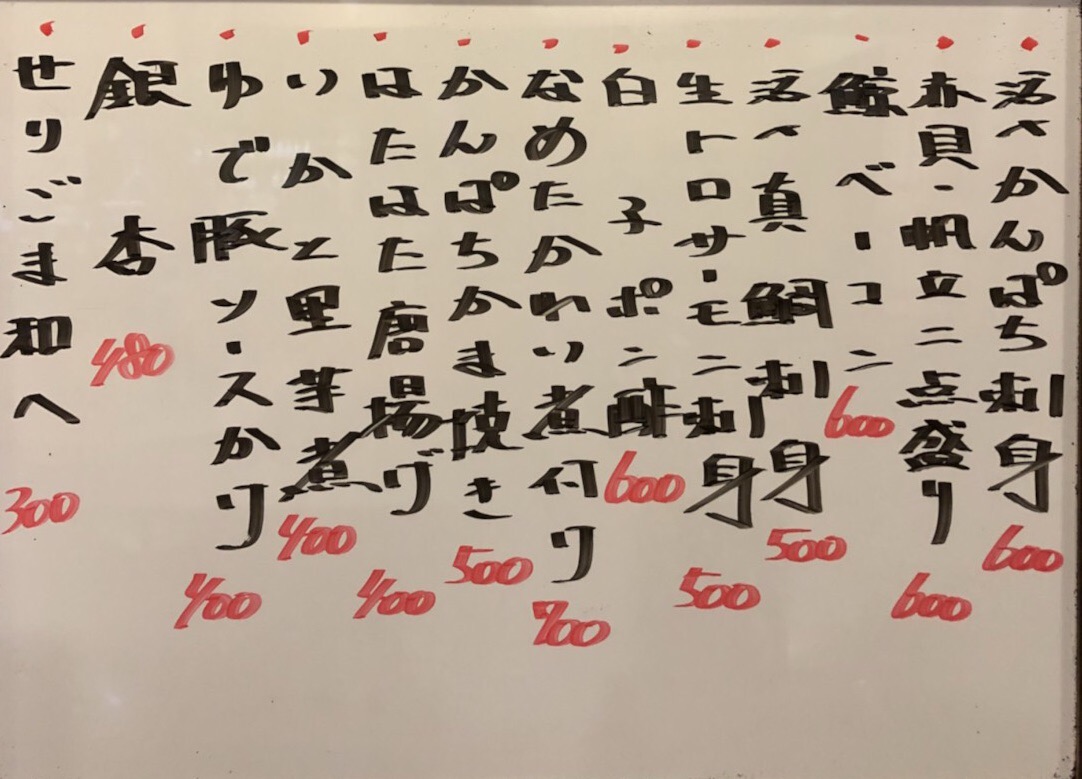 活〆かんぱち刺身 600
赤貝・帆立二点盛り 600
鯨ベーコン 600
活〆真鯛刺身 500
生トロサーモン刺身 500
白子ポン酢 600
なめたかれい煮付け 700
かんぱちかま焼き 500
はたはた唐揚げ 400
いかと里芋煮 400
ゆで豚ソースかけ 400
銀杏 480
せりごま和へ 300